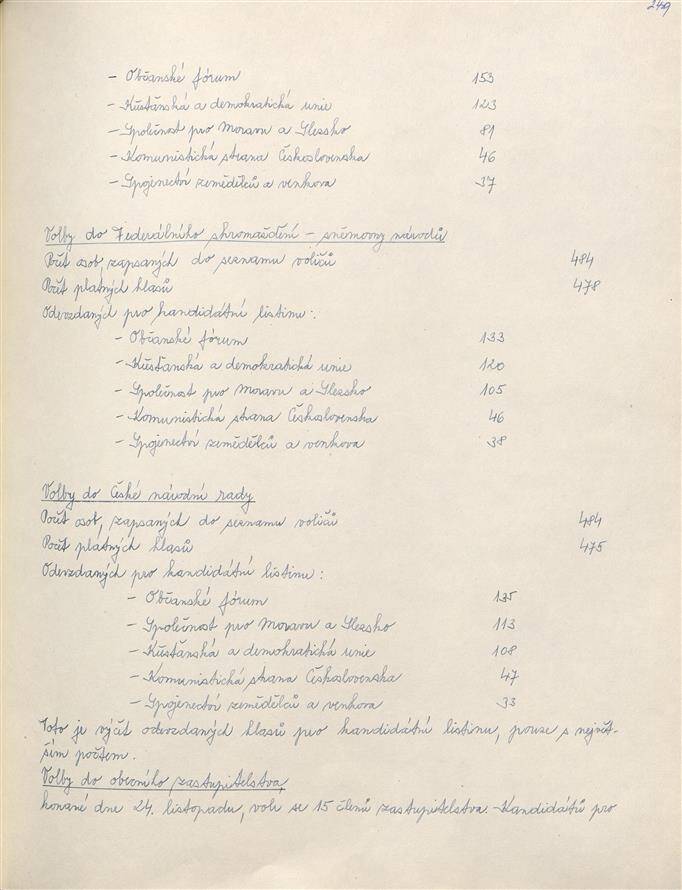 249
- Občanské fórum 153
- Křesťanská a demokratická unie 123
- Společnost pro Moravu a Slezsko 81
- Komunistická strana Československa 46
- Spojenectví zemědělců a venkova 37
Volby do Federálního shromaždění - sněmovny národů
Počet osob, zapsaných do seznamu voličů 484
Počet platných hlasů 478
Odevzdaných pro kandidátní listinu:
- Občanské fórum 133
- Křesťanská a demokratická unie 120
- Společnost pro Moravu a Slezsko 105
- Komunistická strana Československa 46
- Spojenectví zemědělců a venkova 38
Volby do České národní rady
Počet osob, zapsaných do seznamu voličů 484
Počet platných hlasů 475
Odevzdaných pro kandidátní listinu:
- Občanské fórum 135
- Společnost pro Moravu a Slezsko 113
- Křesťanská a demokratická unie 108
- Komunistická strana Československa 47
- Spojenectví zemědělců a venkova 33
Toto je výčet odevzdaných hlasů pro kandidátní listinu, pouze s největ-
ším počtem.
Volby do obecního zastupitelstva,
konané dne 24. listopadu, volí se 15 členů zastupitelstva. - Kandidátů pro